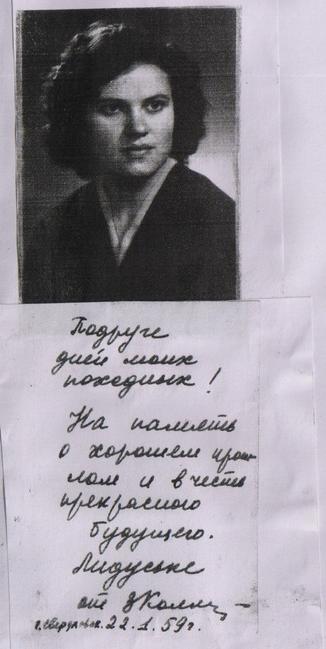 Подруге
дней моих
походных!
На память
о хорошем прош-
лом и в честь
прекрасного
будущего.
Лидуське
от
г. Свердловск. 22.1.59г.